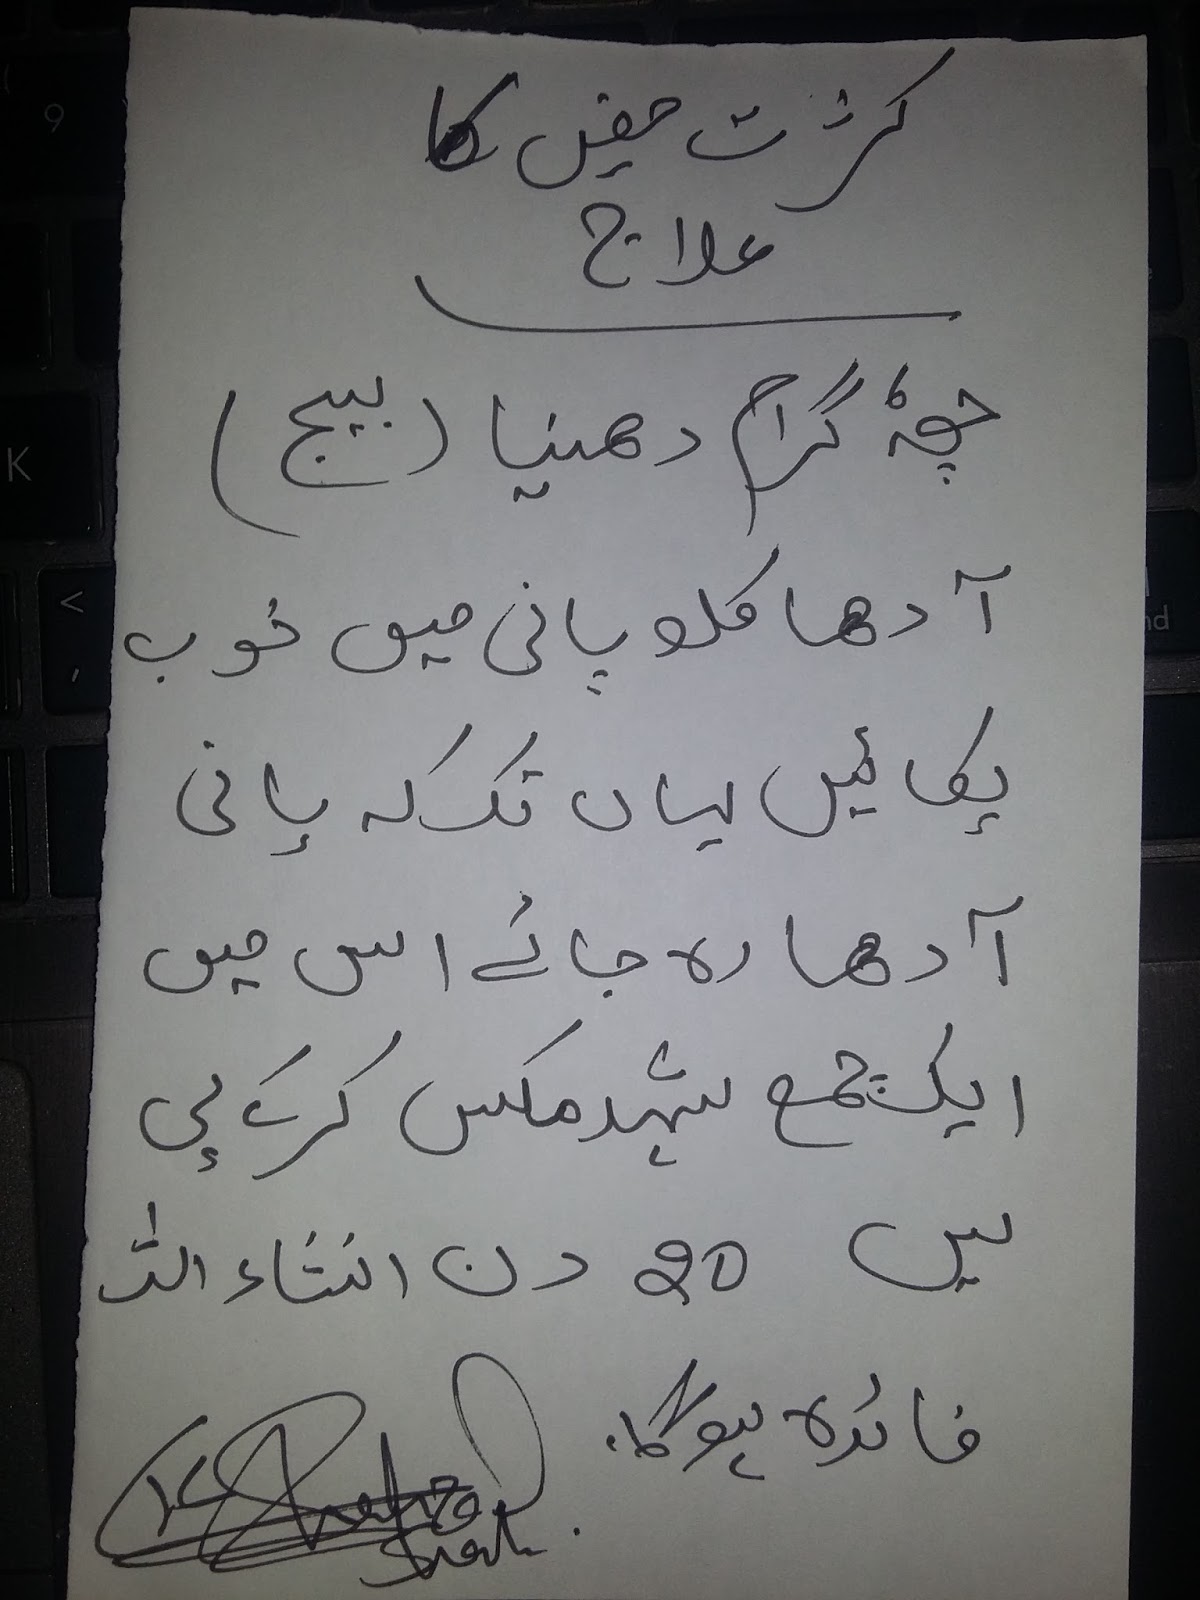 کثرت حیض کا
علاج
چھ گرام دھنیا (بیج)
آدھا کلو پانی میں خوب
پکائیں یہاں تک کہ پانی
آدھا رہ جائے اس میں
ایک چمچ شہد مکس کر کے پی
لیں 20 دن انشاء اللہ
فائدہ ہوگا.
9
K
<
,